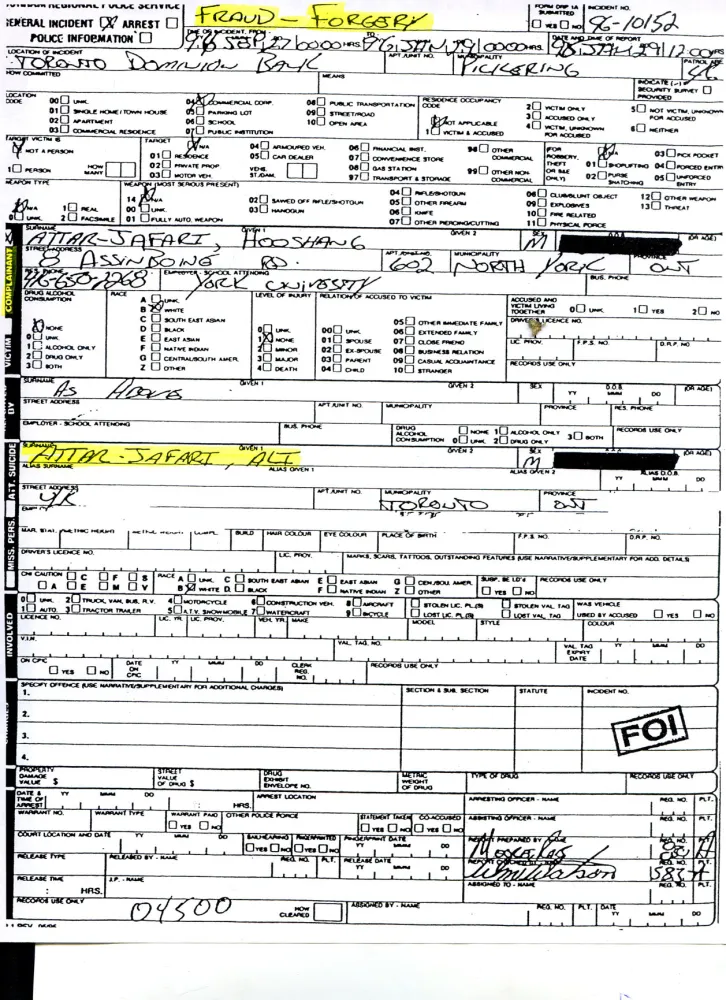 DURHAM REGIONAL POLICE SERVICE
GENERAL INCIDENT ARREST
POLICE INFORMATION
FRAUD - FORGERY
FORM DRP 1A SUBMITTED YES NO
INCIDENT NO. 96-10152
DATE AND TIME OF REPORT
96 JAN 29 1200 HRS
LOCATION OF INCIDENT
TORONTO DOMINION BANK
APT./UNIT NO.
MUNICIPALITY
PICKERING
PATROL AREA
HOW COMMITTED
MEANS
INDICATE (✓) IF SECURITY SURVEY PROVIDED
LOCATION CODE
00 UNK.
01 SINGLE HOME/TOWN HOUSE
02 APARTMENT
03 COMMERCIAL RESIDENCE
04 COMMERCIAL CORP.
05 PARKING LOT
06 SCHOOL
07 PUBLIC INSTITUTION
08 PUBLIC TRANSPORTATION
09 STREET/ROAD
10 OPEN AREA
RESIDENCE OCCUPANCY CODE
NOT APPLICABLE
1 VICTIM & ACCUSED
2 VICTIM ONLY
3 ACCUSED ONLY
4 VICTIM, UNKNOWN FOR ACCUSED
5 NOT VICTIM, UNKNOWN FOR ACCUSED
6 NEITHER
TARGET VICTIM IS
NOT A PERSON
1 PERSON
HOW MANY
TARGET
N/A
01 RESIDENCE
02 PRIVATE PROP
03 MOTOR VEH.
04 ARMOURED VEH.
05 CAR DEALER
VEHS. ST./DAM.
06 FINANCIAL INST.
07 CONVENIENCE STORE
08 GAS STATION
97 TRANSPORT & STORAGE
98 OTHER COMMERCIAL
99 OTHER NON-COMMERCIAL
(FOR ROBBERY, THEFT OR B&E ONLY)
N/A
01 SHOPLIFTING
02 PURSE SNATCHING
03 PICK POCKET
04 FORCED ENTRY
05 UNFORCED ENTRY
WEAPON TYPE
N/A
0 UNK.
1 REAL
2 FACSIMILE
WEAPON (MOST SERIOUS PRESENT)
14 N/A
00 UNK.
01 FULLY AUTO. WEAPON
02 SAWED OFF RIFLE/SHOTGUN
03 HANDGUN
04 RIFLE/SHOTGUN
05 OTHER FIREARM
06 KNIFE
07 OTHER PIERCING/CUTTING
08 CLUB/BLUNT OBJECT
09 EXPLOSIVES
10 FIRE RELATED
11 PHYSICAL FORCE
12 OTHER WEAPON
13 THREAT
COMPLAINANT
SURNAME GIVEN 1 GIVEN 2 SEX D.O.B. (OR AGE)
ATTAR-JAFARI, HOOSHANG M
STREET ADDRESS APT./UNIT NO. MUNICIPALITY
8 ASSINBOINE RD. 602 NORTH YORK ONT
RES. PHONE EMPLOYER - SCHOOL ATTENDING BUS. PHONE
416-650-1268 YORK UNIVERSITY
VICTIM
DRUG ALCOHOL CONSUMPTION
NONE
0 UNK.
1 ALCOHOL ONLY
2 DRUG ONLY
3 BOTH
RACE
A UNK.
B WHITE
C SOUTH EAST ASIAN
D BLACK
E EAST ASIAN
F NATIVE INDIAN
G CENTRAL/SOUTH AMER.
Z OTHER
LEVEL OF INJURY
0 UNK.
1 NONE
2 MINOR
3 MAJOR
4 DEATH
RELATION OF ACCUSED TO VICTIM
00 UNK.
01 SPOUSE
02 EX-SPOUSE
03 PARENT
04 CHILD
05 OTHER IMMEDIATE FAMILY
06 EXTENDED FAMILY
07 CLOSE FRIEND
08 BUSINESS RELATION
09 CASUAL ACQUAINTANCE
10 STRANGER
ACCUSED AND VICTIM LIVING TOGETHER 0 UNK. 1 YES 2 NO
DRIVER'S LICENCE NO.
LIC. PROV. F.P.S. NO. D.R.P. NO
RECORDS USE ONLY
BY
SURNAME GIVEN 1 GIVEN 2 SEX D.O.B. (OR AGE)
AS ABOVE
STREET ADDRESS APT./UNIT NO. MUNICIPALITY PROVINCE RES. PHONE
EMPLOYER - SCHOOL ATTENDING BUS. PHONE
DRUG ALCOHOL CONSUMPTION NONE 0 UNK. 1 ALCOHOL ONLY 2 DRUG ONLY 3 BOTH
RECORDS USE ONLY
MISS. PERS. ATT. SUICIDE
SURNAME GIVEN 1 GIVEN 2 SEX (OR AGE)
ATTAR-JAFARI, ALI M
ALIAS SURNAME ALIAS GIVEN 1 ALIAS GIVEN 2 ALIAS D.O.B.
STREET ADDRESS APT./UNIT NO. MUNICIPALITY PROVINCE
TORONTO ONT
BUILD HAIR COLOUR EYE COLOUR PLACE OF BIRTH F.P.S. NO. D.R.P. NO.
DRIVER'S LICENCE NO. LIC. PROV. MARKS, SCARS, TATTOOS, OUTSTANDING FEATURES (USE NARRATIVE/SUPPLEMENTARY FOR ADD. DETAILS)
CNI CAUTION C F S A E M V
RACE A UNK. B WHITE C SOUTH EAST ASIAN D BLACK E EAST ASIAN F NATIVE INDIAN G CEN./SOU. AMER. Z OTHER
YES NO
RECORDS USE ONLY
INVOLVED
0 UNK. 1 AUTO. 2 TRUCK, VAN, BUS, R.V. 3 TRACTOR TRAILER 4 MOTORCYCLE 5 A.T.V. SNOWMOBILE 6 CONSTRUCTION VEH. 7 WATERCRAFT 8 AIRCRAFT 9 BICYCLE
STOLEN LIC. PL.(S) LOST LIC. PL.(S) STOLEN VAL. TAG LOST VAL. TAG WAS VEHICLE USED BY ACCUSED YES NO
LICENCE NO. LIC. YR. LIC. PROV. VEH. YR. MAKE MODEL STYLE COLOUR
V.I.N. VAL. TAG. NO. VAL. TAG EXPIRY DATE YY MMM DD
ON CPIC YES NO DATE ON CPIC YY MMM DD CLERK REG. NO. RECORDS USE ONLY
SPECIFY OFFENCE (USE NARRATIVE/SUPPLEMENTARY FOR ADDITIONAL CHARGES) SECTION & SUB. SECTION STATUTE INCIDENT NO.
1.
2.
3.
4.
FOI
PROPERTY DAMAGE VALUE $ STREET VALUE OF DRUG $ DRUG EXHIBIT ENVELOPE NO. METRIC WEIGHT OF DRUG TYPE OF DRUG RECORDS USE ONLY
DATE & TIME OF ARREST YY MMM DD : HRS. ARREST LOCATION ARRESTING OFFICER - NAME REG. NO. PLT.
WARRANT NO. WARRANT TYPE WARRANT PAID YES NO OTHER POLICE FORCE STATEMENT TAKEN YES NO CO-ACCUSED YES NO ASSISTING OFFICER - NAME REG. NO. PLT.
COURT LOCATION AND DATE YY MMM DD BAIL HEARING YES NO FINGERPRINTED YES NO FINGERPRINT DATE YY MMM DD REPORT PREPARED BY
RELEASE TYPE RELEASED BY - NAME REG. NO. PLT. RELEASE DATE YY MMM DD
583 A
RELEASE TIME : HRS. J.P. - NAME ASSIGNED TO - NAME REG. NO. PLT.
RECORDS USE ONLY 04500 HOW CLEARED ASSIGNED BY - NAME REG. NO. PLT. DATE YY MMM DD